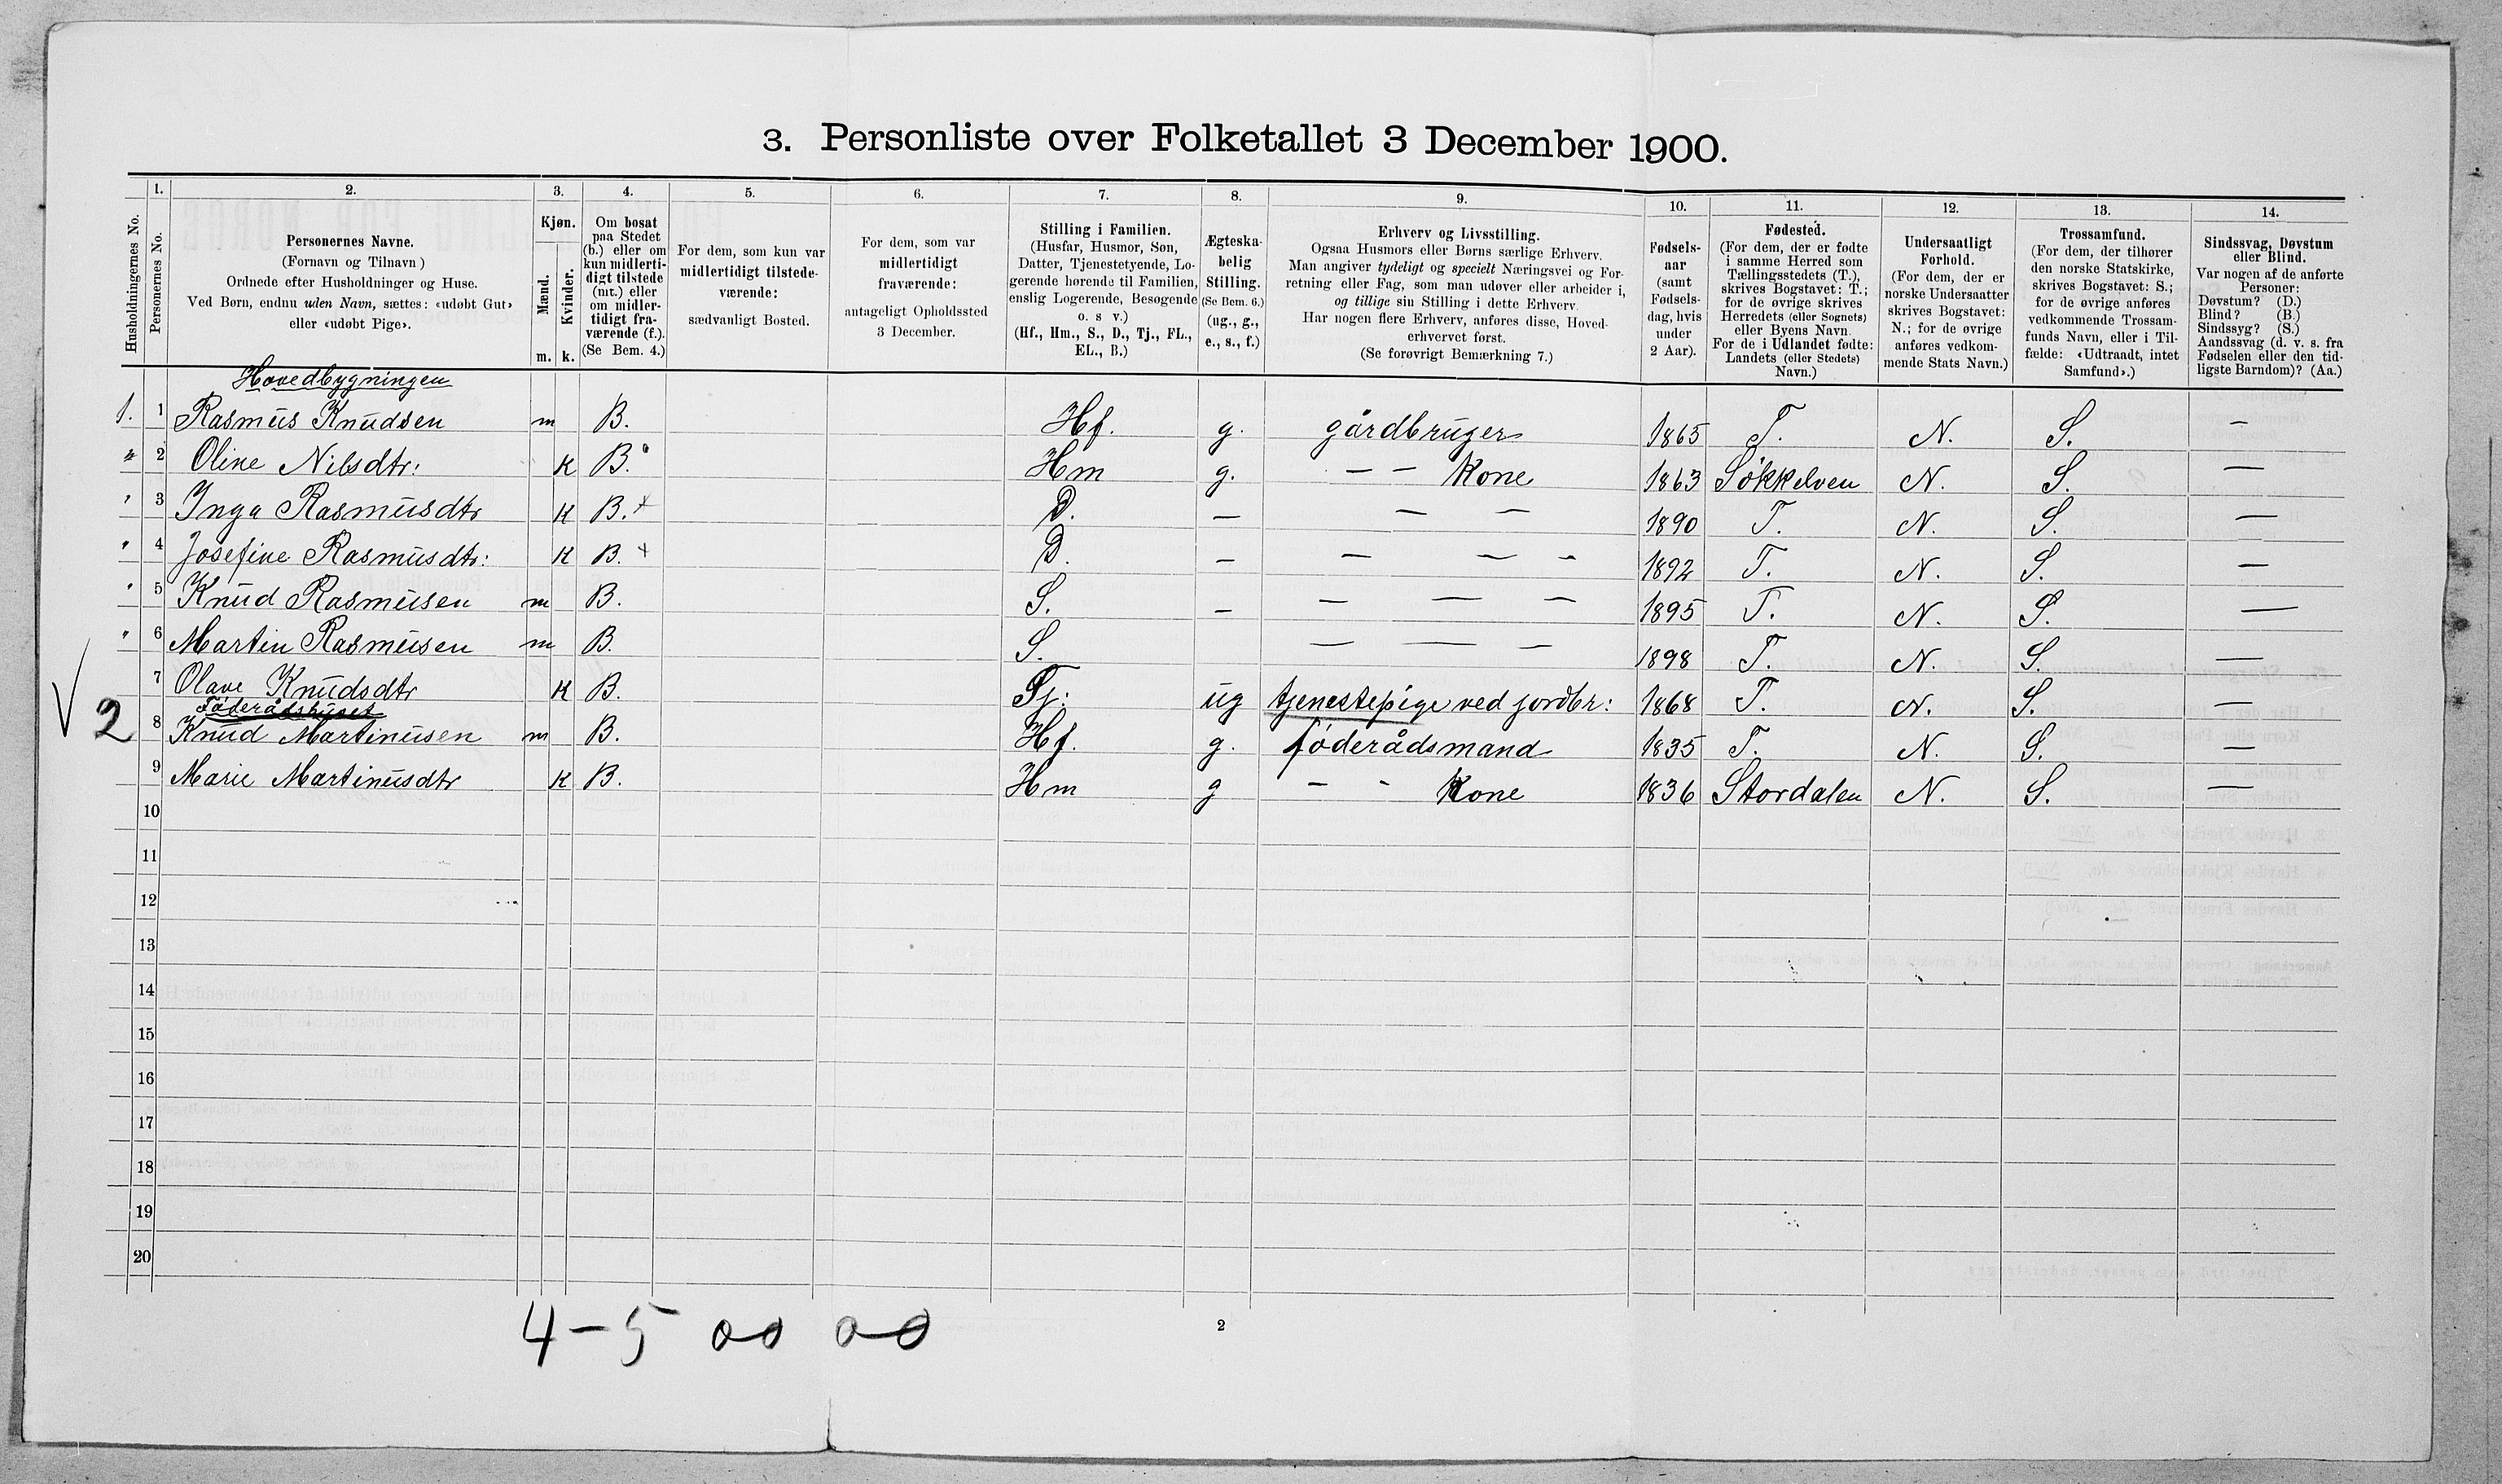 3. Personliste over Folketallet 3 December 1900.
1. 2. 3. 4. 5. 6. 7. 8. 9. 10. 11. 12. 13. 14.
Husholdningernes No.
Personernes No.
Personernes Navne.
(Fornavn og Tilnavn )
Ordnede efter Husholdninger og Huse.
Ved Børn, endnu uden Navn, sættes: «udøbt Gut»
eller «udøbt Pige».
Kjøn.
Mænd.
Kvinder.
m. k.
Om bosat
paa Stedet
(b.) eller om
kun midlerti-
digt tilstede
(mt.) eller
om midler-
tidigt fra-
værende (f.).
(Se Bem. 4.)
For dem, som kun var
midlertidigt tilstede-
værende:
sædvanligt Bosted.
For dem, som var
midlertidigt
fraværende:
antageligt Opholdssted
3 December.
Stilling i Familien.
(Husfar, Husmor, Søn,
Datter, Tjenestetyende, Lo-
gerende hørende til Familien,
enslig Logerende, Besøgende
o. s v.)
(Hf., Hm., S., D., Tj., FL.,
EL., B.)
Ægteska-
belig
Stilling.
(Se Bem. 6.)
(ug., g.,
e., s., f.)
Erhverv og Livsstilling.
Ogsaa Husmors eller Børns særlige Erhverv.
Man angiver tydeligt og specielt Næringsvei og For-
retning eller Fag, som man udøver eller arbeider i,
og tillige sin Stilling i dette Erhverv.
Har nogen flere Erhverv, anføres disse, Hoved-
erhvervet først.
(Se forøvrigt Bemærkning 7.)
Fødsels-
aar
(samt
Fødsels-
dag, hvis
under
2 Aar).
Fødested.
(For dem, der er fødte
i samme Herred som
Tællingsstedets (T.),
skrives Bogstavet: T.;
for de øvrige skrives
Herredets (eller Sognets)
eller Byens Navn.
For de i Udlandet fødte:
Landets (eller Stedets)
Navn.)
Undersaatligt
Forhold.
(For dem, der er
norske Undersaatter
skrives Bogstavet:
N.; for de øvrige
anføres vedkom-
mende Stats Navn.)
Trossamfund.
(For dem, der tilhører
den norske Statskirke,
skrives Bogstavet: S.;
for de øvrige anføres
vedkommende Trossam-
funds Navn, eller i Til-
fælde: «Udtraadt, intet
Samfund».)
Sindssvag, Døvstum
eller Blind.
Var nogen af de anførte
Personer:
Døvstum? (D.)
Blind? (B.)
Sindssyg? (S.)
Aandssvag (d. v. s. fra
Fødselen eller den tid-
ligste Barndom)? (Aa.)
Hovedbygningen
1. 1 Rasmus Knudsen m B. Hf. g. gårdbruger 1865 T. N. S. —
" 2 Oline Nilsdtr: K B. Hm g. — — Kone 1863 Søkkelven N. S. —
" 3 Inga Rasmusdtr K B. + D. — — — 1890 T. N. S. —
" 4 Josefine Rasmusdtr: K B. + D. — — — — 1892 T. N. S. —
" 5 Knud Rasmusen m B. S. — — — — 1895 T. N. S. —
" 6 Martin Rasmusen m B. S. — — — 1898 T. N. S. —
7 Olave Knudsdtr K B. Tj: ug tjenestepige ved jordbr: 1868 T. N. S. —
Føderådshuset
2 8 Knud Martinusen m B. Hf. g. føderådsmand 1835 T. N. S. —
9 Marie Martinusdtr K B. Hm g — - Kone 1836 Stordalen N. S. —
10
11
12
13
14
15
16
17
18
19
20
4 – 5 00 00
2